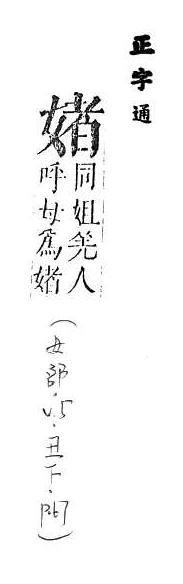 正字通
媎
同姐羌人
呼母為媎
(女部.V.5.丑下.P.67)